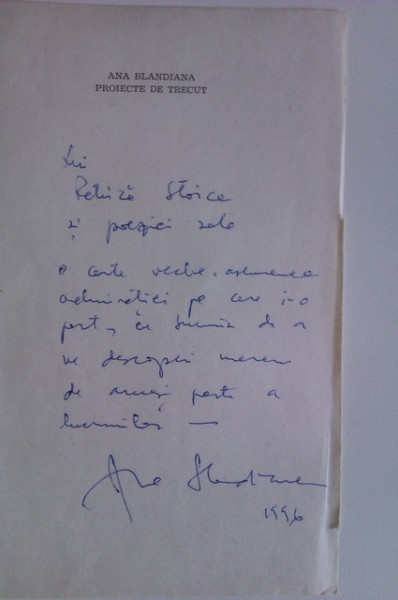 ANA BLANDIANA
PROIECTE DE TRECUT
Lui
Petruță Stoica
și poeziei sale
o carte veche, asemenea
admirației pe care i-o
port, cu bucuria de a
ne descoperi mereu
de aceeași parte a
lucrurilor —
Ana Blandiana
1996